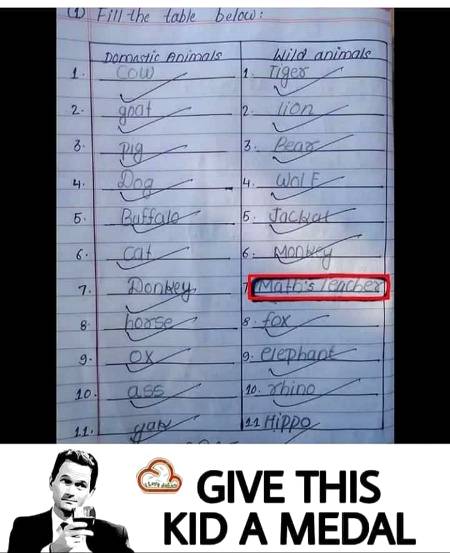 (1) Fill the table below:
Domastic Animals Wild animals
1. Cow 1. Tiger
2. goat 2. lion
3. pig 3. Bear
4. Dog 4. Wolf
5. Buffalo 5. Jackal
6. cat 6. Monkey
7. Donkey 7 Math's Teacher
8. horse 8. fox
9. OX 9. elephant
10. ass 10. rhino
11. 11 Hippo
GIVE THIS
KID A MEDAL